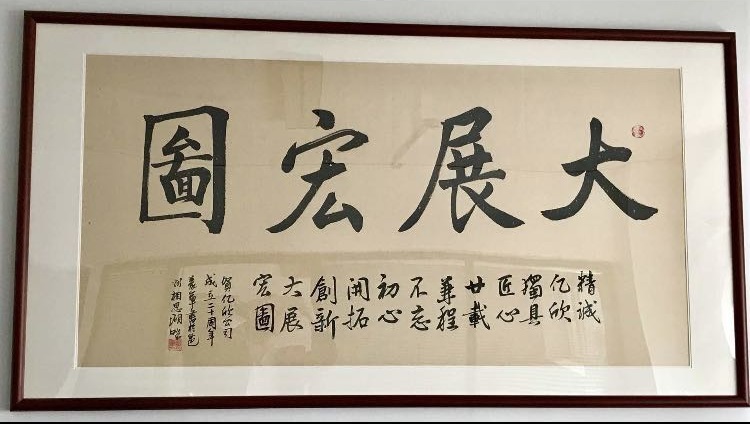 大展宏圖
精诚
亿欣
獨具
匠心
廿載
兼程
不忘
初心
開拓
創新
大展
宏圖
贺亿欣公司
成立二十周年
相思湖畔